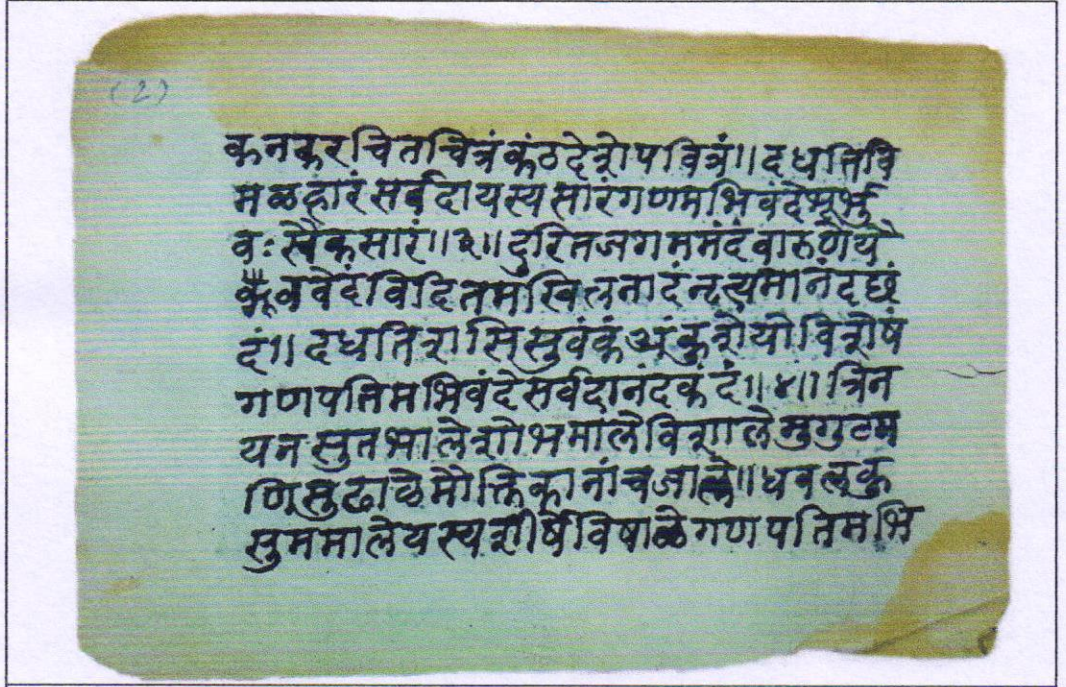 (2)
कनकरचितचित्रंकंठदेशेपवित्रं॥दधतिवि
मळहारंसर्वदायस्यसारंगणमभिवंदेभूर्भु
वःस्वैकसारं॥३॥दुरितजगममंदंवारुणैये
कवेदंविदितमखिलनादंनृत्यमानंदछं
दं॥दधतिशसिसुवंकंअंकुशेयोविशेषं
गणपतिमभिवंदेसर्वदानंदकंदं॥४॥त्रिन
यनसुतभालेशोभमालेविशालेमुगुटम
णिसुढाळेमौक्तिकानांचजाले॥धवलकु
सुममालेयस्यशीर्षेविषाळेगणपतिमभि